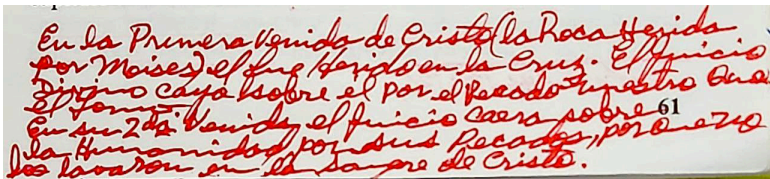 En la Primera Venida de Cristo (la Roca Herida
por Moises) el fue Herido en la Cruz. El Juicio
Divino cayo sobre el por el Pecado nuestro Que
El Tomó
61
En su 2da Venida, el Juicio caera sobre
la Humanidad por sus Pecados, porque no
los lavaron en la sangre de Cristo.